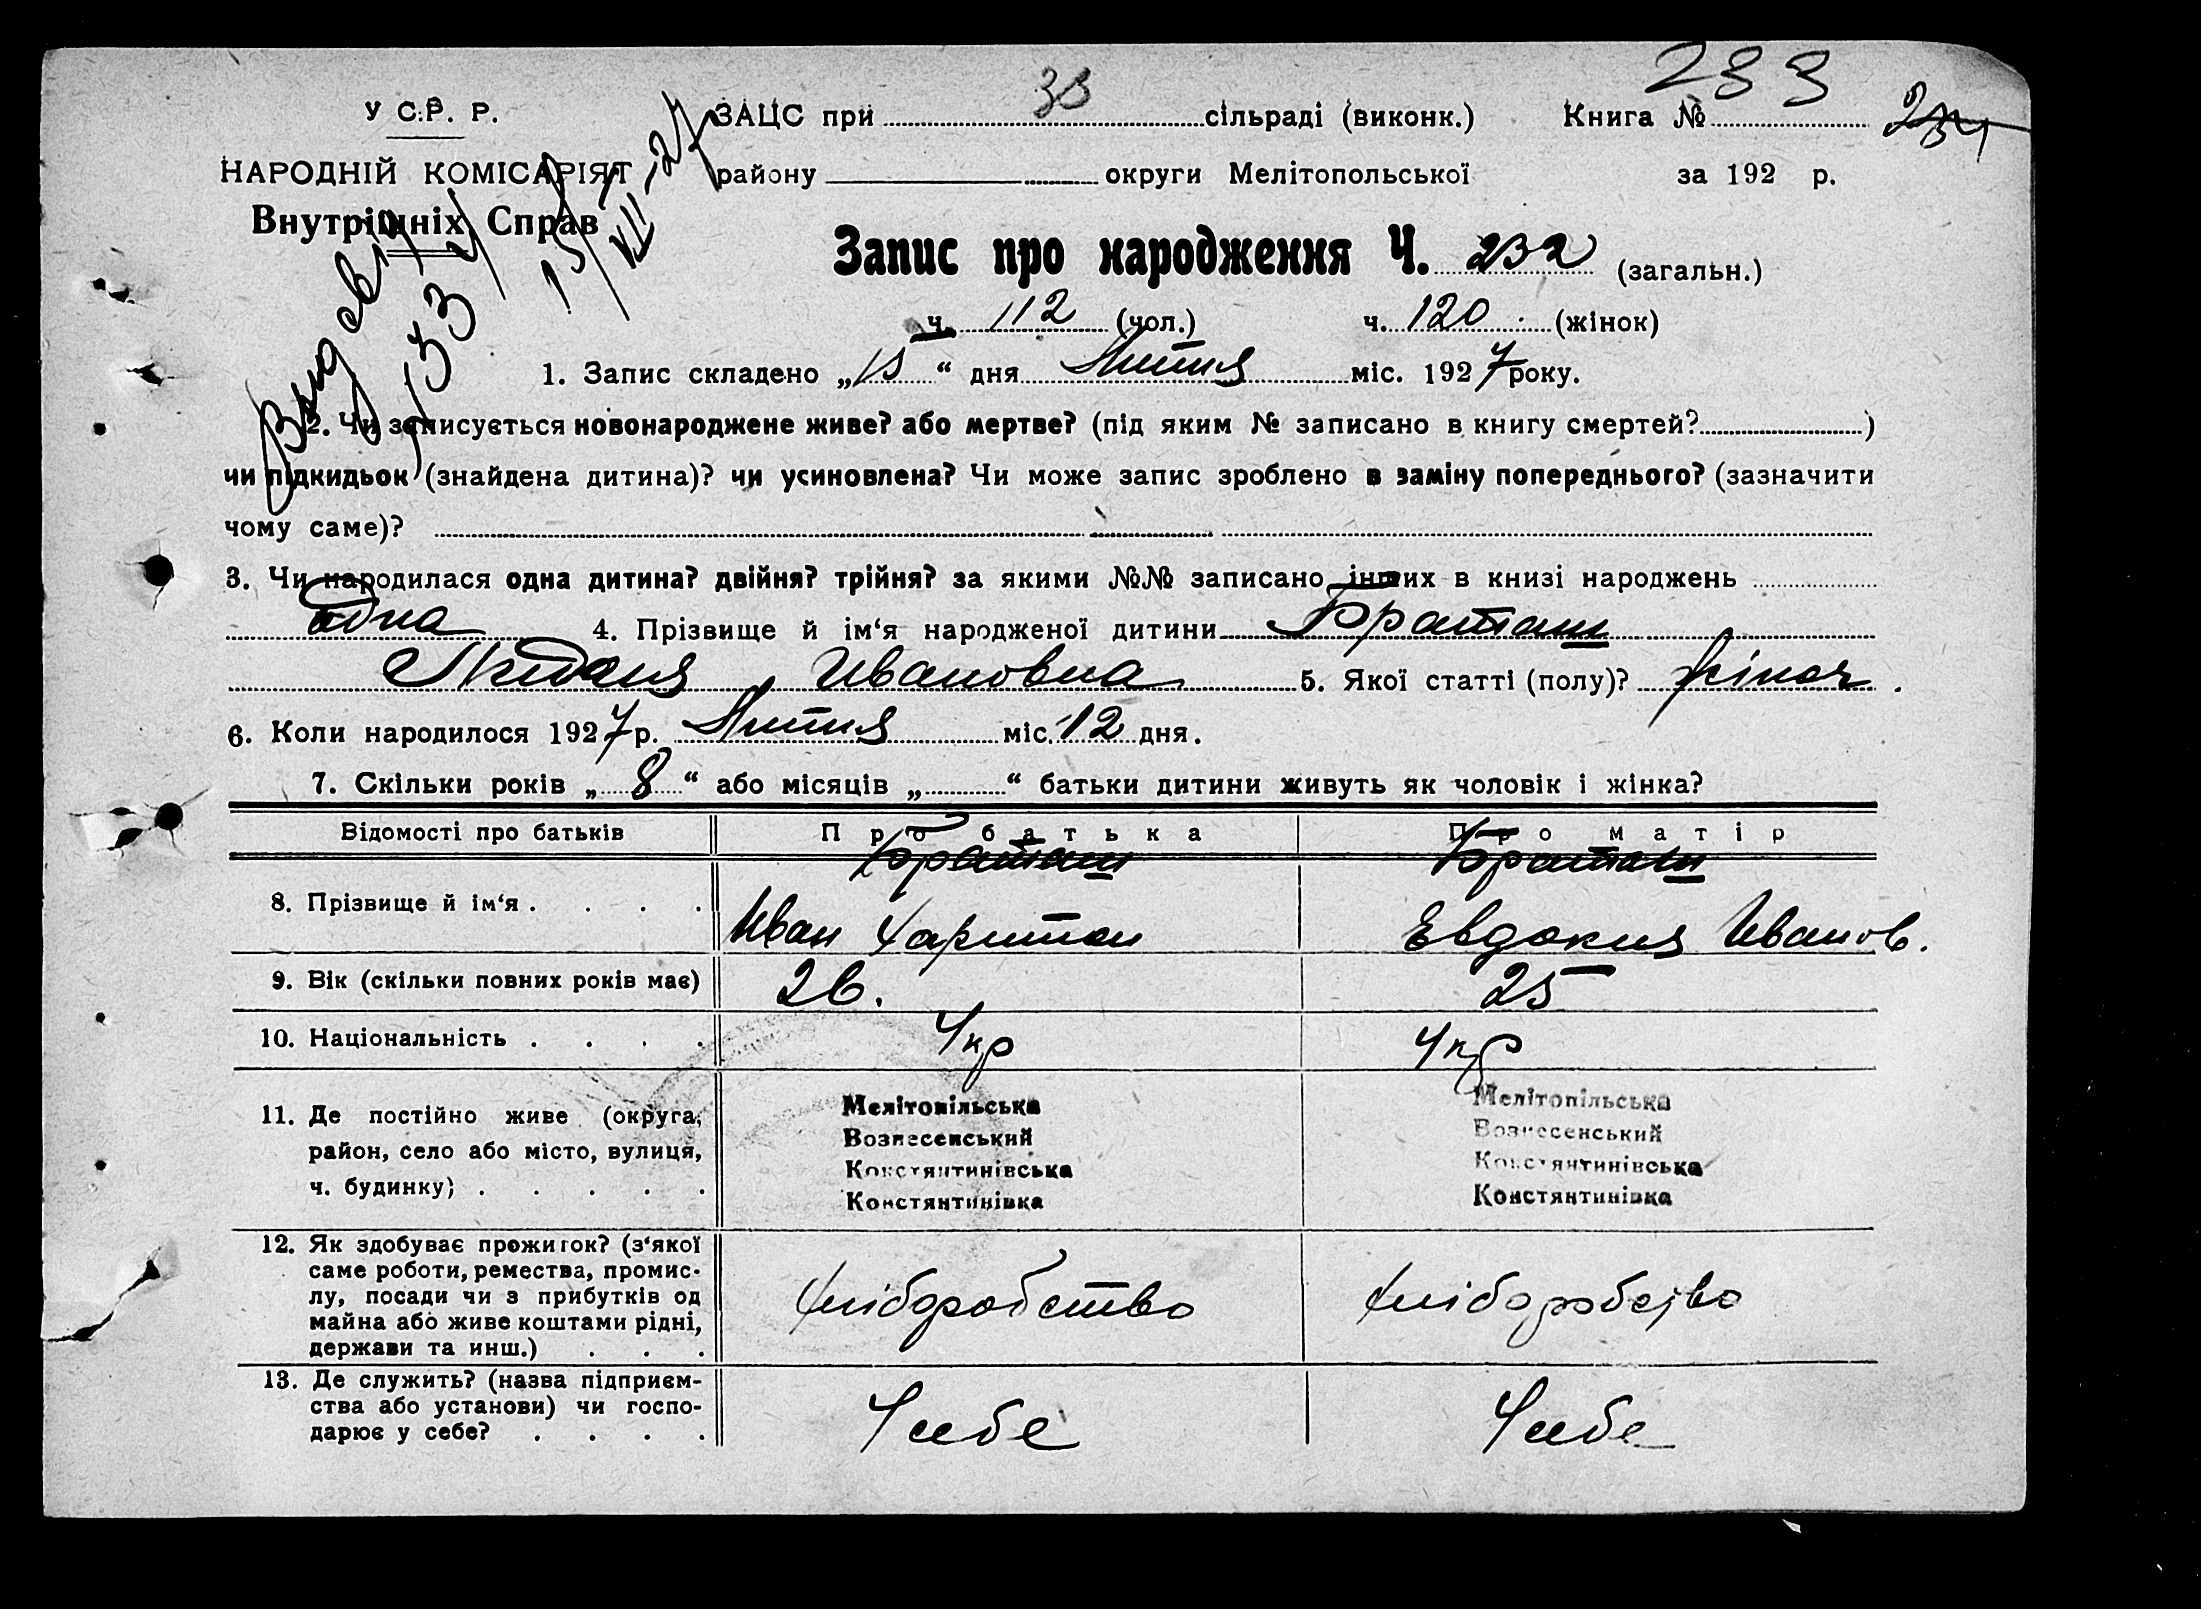 У С.Р. Р.
НАРОДНІЙ КОМІСАРІЯТ
Внутрішніх Справ
ЗАЦС при сільраді (виконк.) Книга № 233
району округи Мелітопольської за 192 р.
Запис про народження Ч. 232 (загальн.)
ч. 112 (чол.) ч. 120 (жінок)
1. Запис складено „15“ дня Липня міс. 1927 року.
2. Чи записується новонароджене живе? або мертве? (під яким № записано в книгу смертей? )
чи підкидьок (знайдена дитина)? чи усиновлена? Чи може запис зроблено в заміну попереднього? (зазначити
чому саме)?
3. Чи народилася одна дитина? двійня? трійня? за якими №№ записано інших в книзі народжень
одна 4. Прізвище й ім‘я народженої дитини Браташ
Лидия Ивановна 5. Якої статті (полу)? жіноч.
6. Коли народилося 1927 р. Липня міс. 12 дня.
7. Скільки років „8“ або місяців „ “ батьки дитини живуть як чоловік і жінка?
Відомості про батьків Про батька Про матір
Браташ Браташ
8. Прізвище й ім‘я . . . .
Иван Харитон Евдокия Иванов.
9. Вік (скільки повних років має) 26. 25
10. Національність . . . . Укр Укр
11. Де постійно живе (округа, район, село або місто, вулиця, ч. будинку) . . . . .
Мелітопільська Мелітопільська
Вознесенський Вознесенський
Констянтинівська Констянтинівська
Констянтинівка Констянтинівка
12. Як здобуває прожиток? (з‘якої
саме роботи, ремества, промис-
лу, посади чи з прибутків од
майна або живе коштами рідні,
держави та инш.) . . .
хліборобство хліборобство
13. Де служить? (назва підприєм-
ства або установи) чи госпо-
дарює у себе? . . . .
У себе У себе